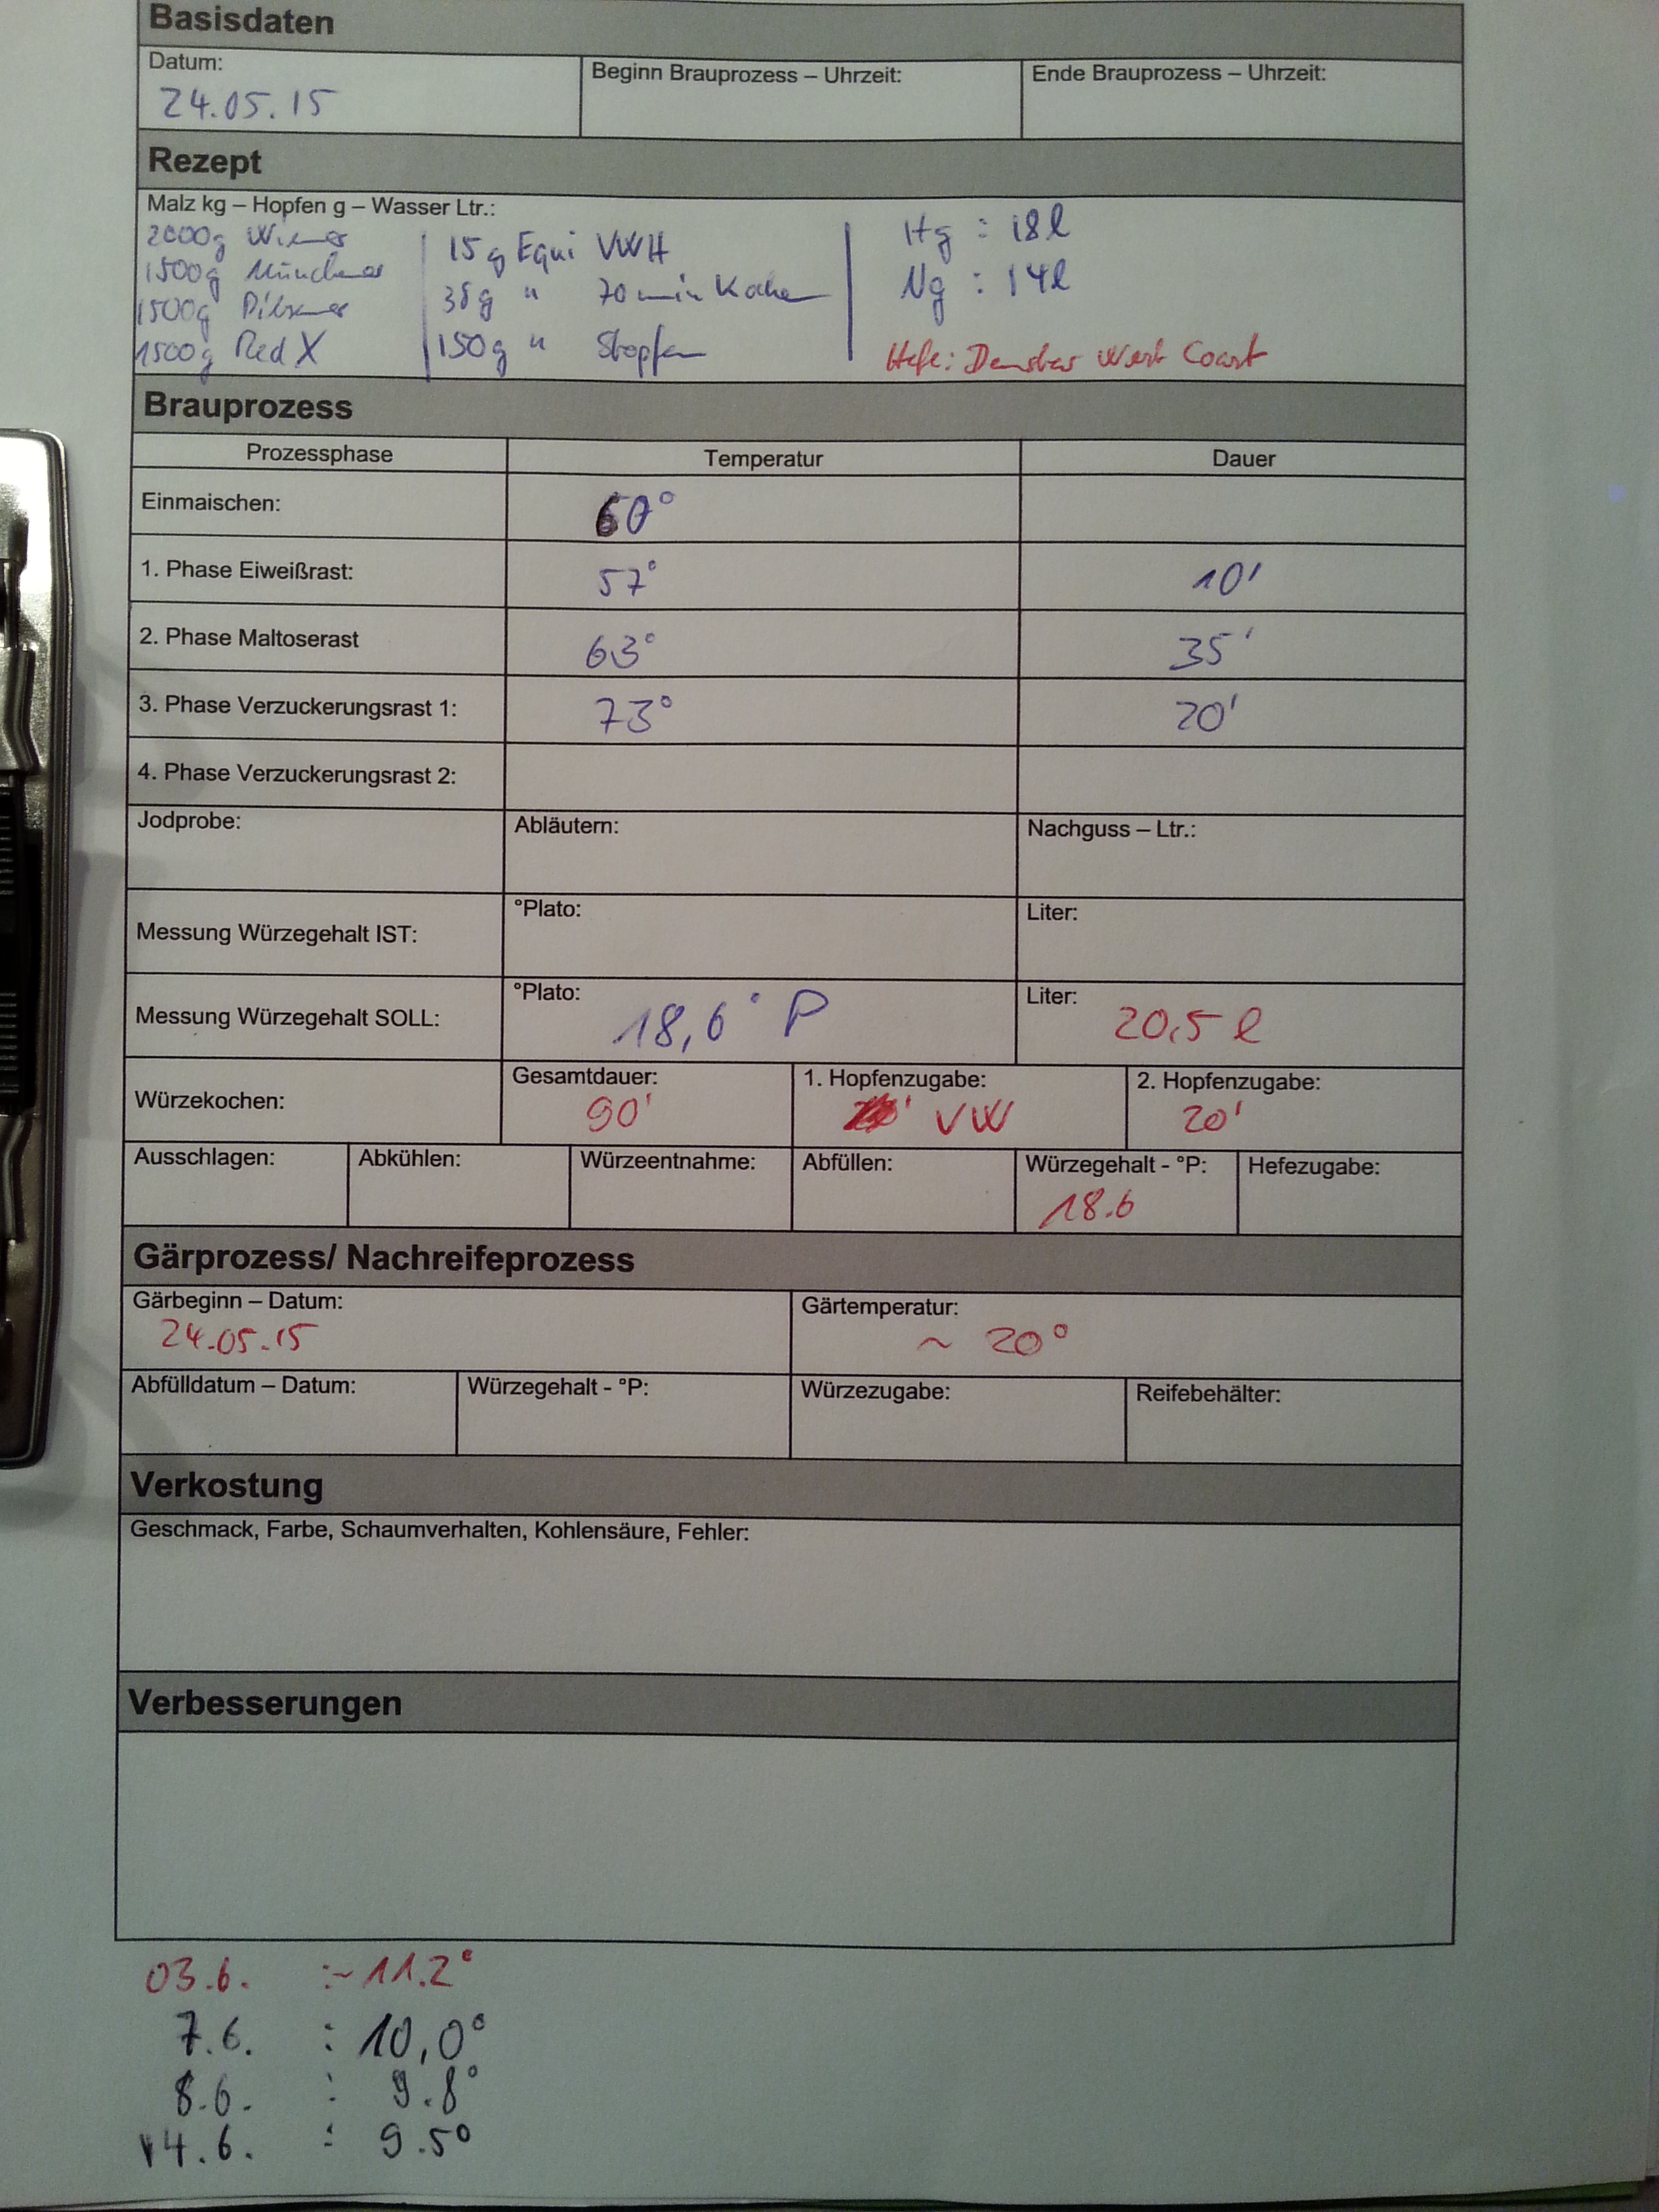 Basisdaten
Datum: Beginn Brauprozess – Uhrzeit: Ende Brauprozess – Uhrzeit:
24.05.15
Rezept
Malz kg – Hopfen g – Wasser Ltr.:
2000g Wiener 15g Equi VWH Hg : 18l
1500g Münchner 38g " 70 min Kochen Ng : 14l
1500g Pilsener
1500g Red X 150g " Stopfen Hefe: Danstar West Coast
Brauprozess
Prozessphase Temperatur Dauer
Einmaischen: 60°
1. Phase Eiweißrast: 57° 10'
2. Phase Maltoserast 63° 35'
3. Phase Verzuckerungsrast 1: 73° 20'
4. Phase Verzuckerungsrast 2:
Jodprobe: Abläutern: Nachguss – Ltr.:
Messung Würzegehalt IST: °Plato: Liter:
Messung Würzegehalt SOLL: °Plato: 18,6° P Liter: 20,5 l
Würzekochen: Gesamtdauer: 1. Hopfenzugabe: 2. Hopfenzugabe:
90' VW 20'
Ausschlagen: Abkühlen: Würzeentnahme: Abfüllen: Würzegehalt - °P: Hefezugabe:
18.6
Gärprozess/ Nachreifeprozess
Gärbeginn – Datum: Gärtemperatur:
24.05.15 ~ 20°
Abfülldatum – Datum: Würzegehalt - °P: Würzezugabe: Reifebehälter:
Verkostung
Geschmack, Farbe, Schaumverhalten, Kohlensäure, Fehler:
Verbesserungen
03.6. :~ 11.2°
7.6. : 10,0°
8.6. : 9.8°
14.6. : 9.5°